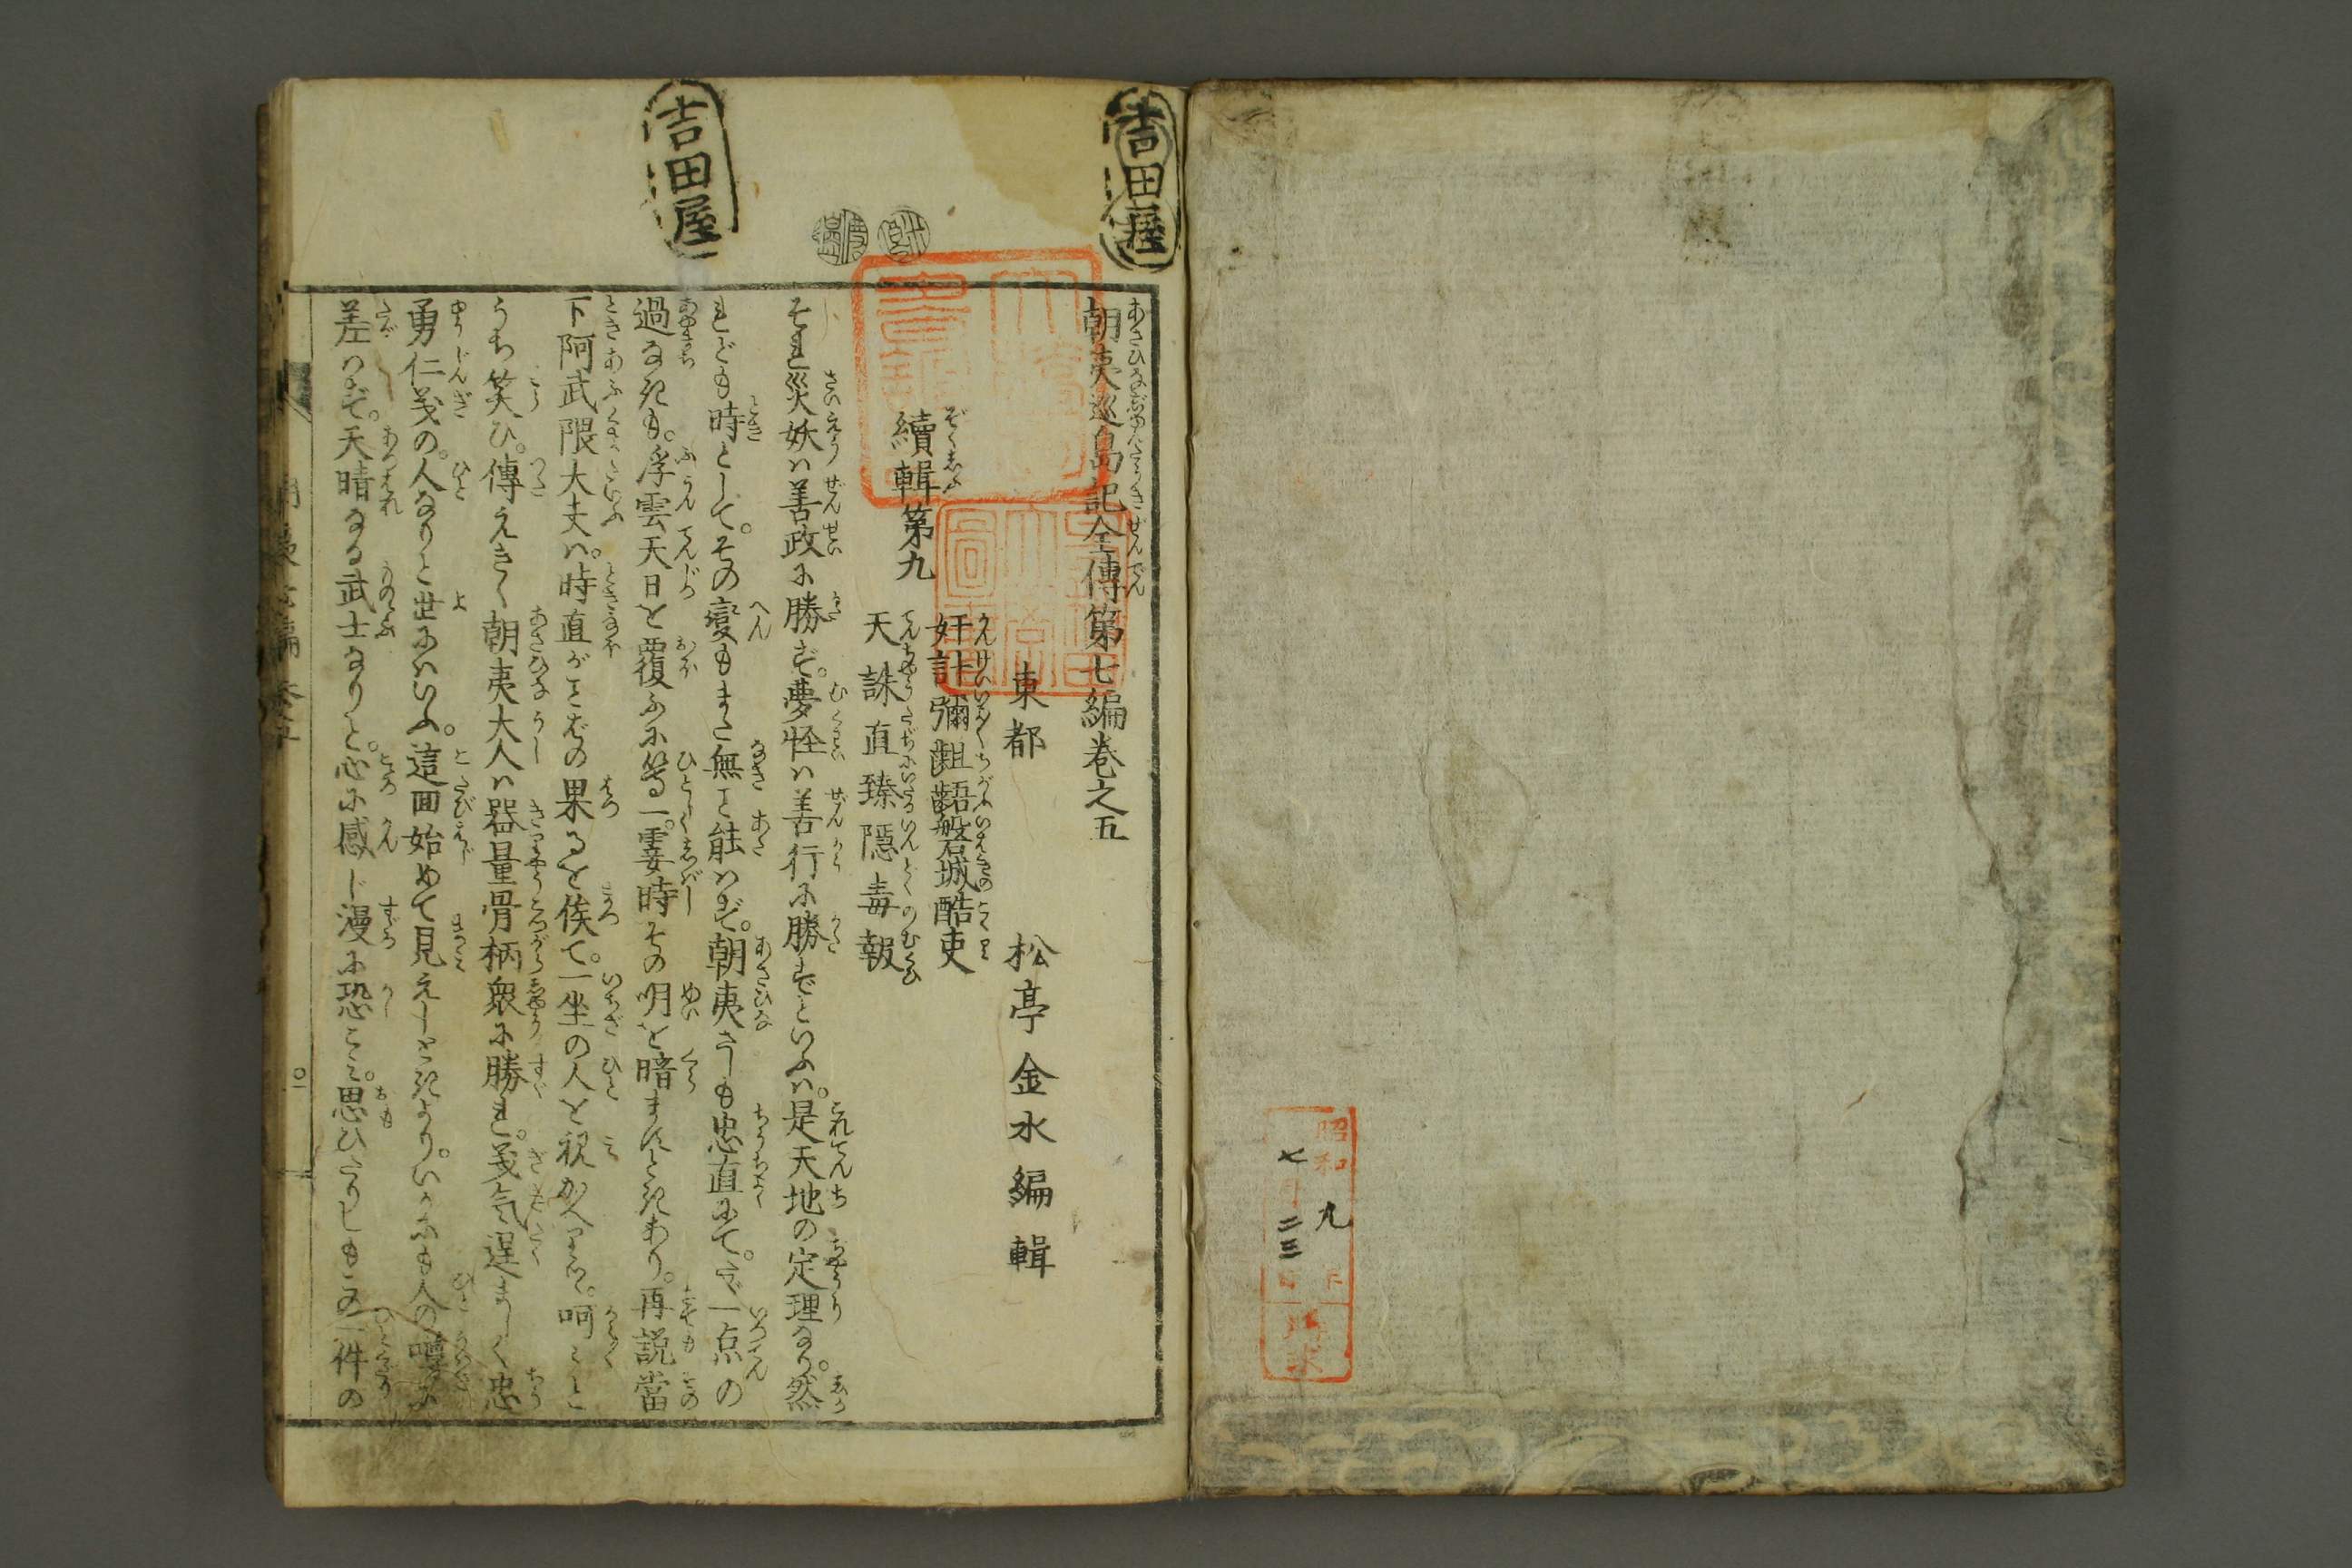 昭和 九
七 二三
吉田屋
吉田屋
朝夷巡島記全傳第七編巻之五
東都 松亭金水編輯
續輯第九
奸計彌齟齬磐城酷吏
天誅直臻隠毒報
それ災妖ハ善政に勝ず。夢怪ハ善行に勝ずといふハ。是天地の定理なり。然
れども時として。その變もまた無と能ハず。朝夷さしも忠直にて。たゞ一点の
過なきも。浮雲天日を覆ふに等し。一霎時その明を暗ますときあり。再説當
下阿武隈大夫ハ。時直がことばの果るを俟て。一坐の人を視かへりつゝ。呵々と
うち笑ひ。傳えきく朝夷大人ハ器量骨柄衆に勝れ。義気逞ましく忠
勇仁義の。人なりと世にハいふ。這回始めて見えしときより。いかにも人の噂に
差ハず。天晴なる武士なりと。心に感じ漫に恐こみ。思ひたりしもこの一件の